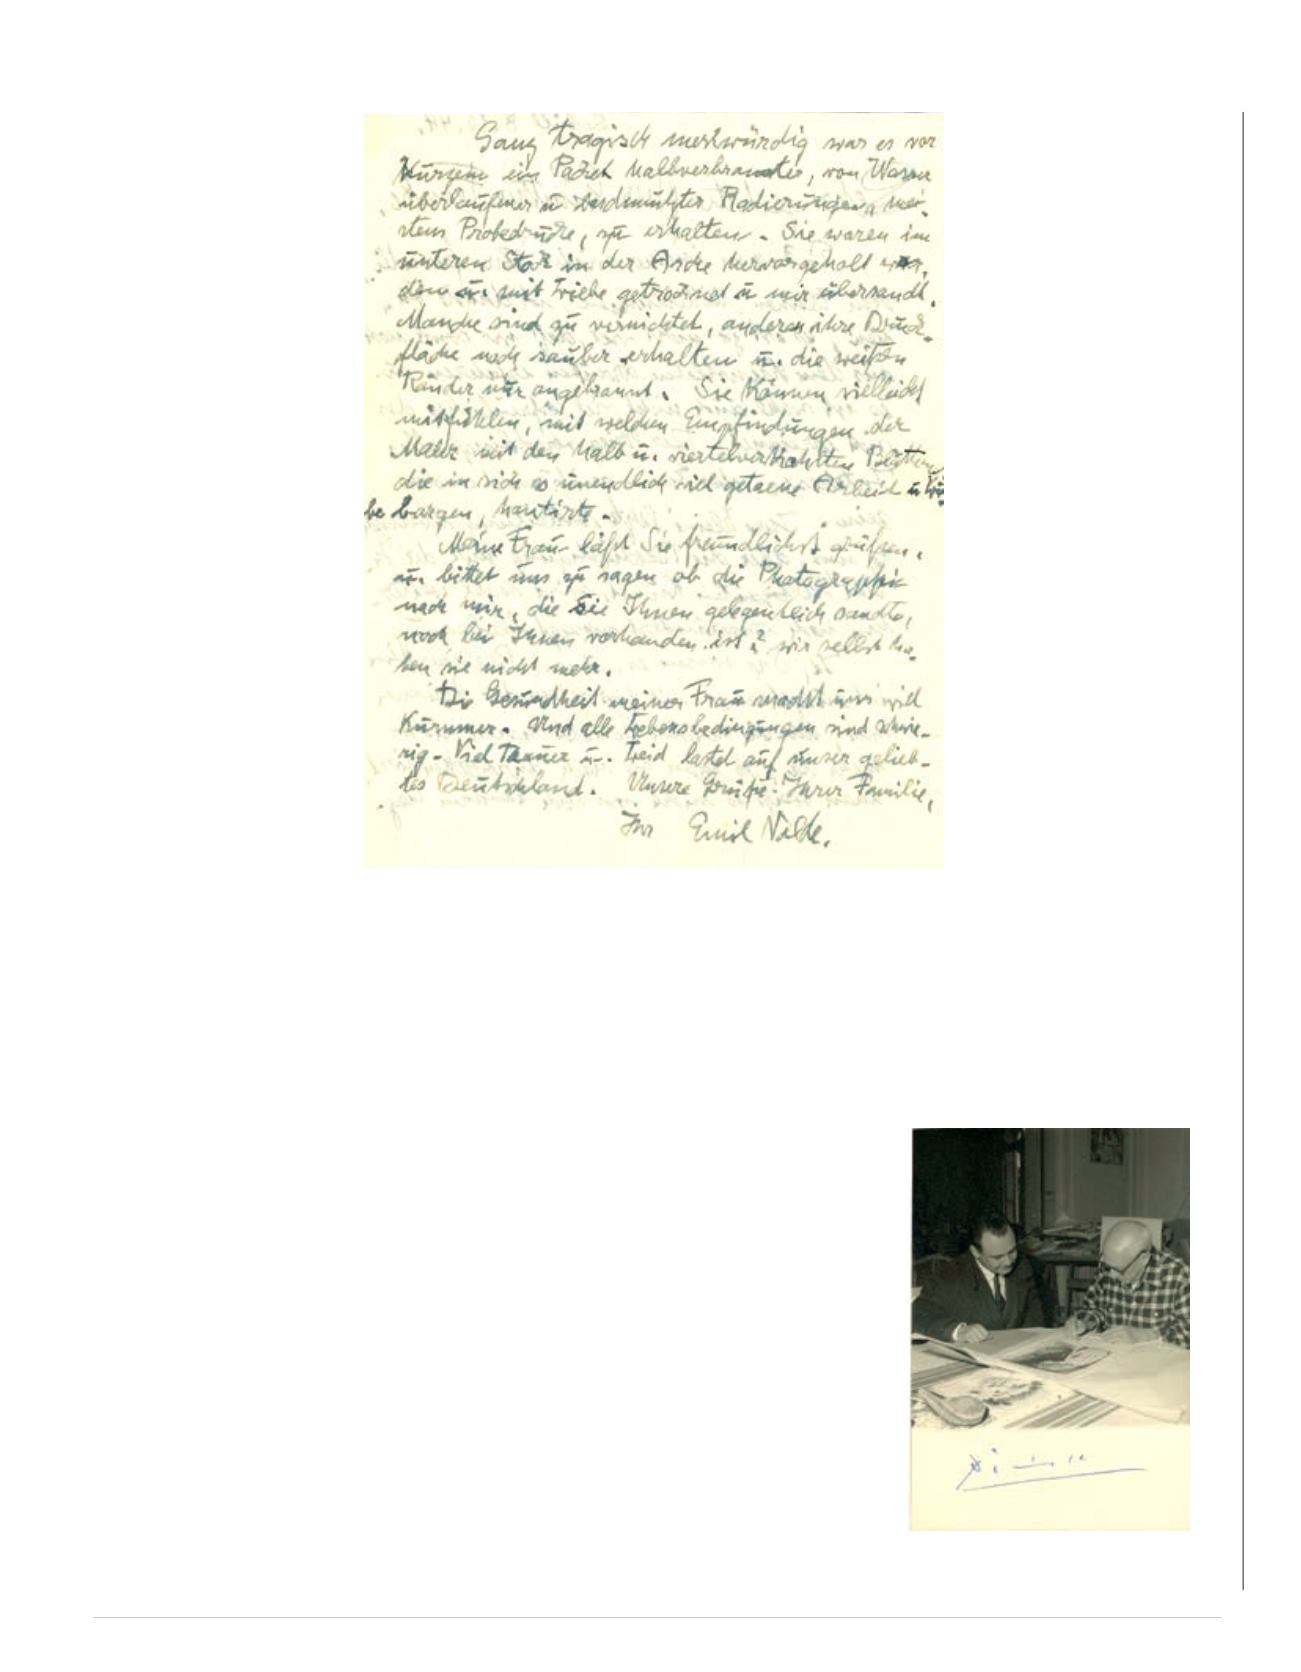 Ganz tragisch merkwürdig war es vor
Kurzem ein Packet halbverbrannter, von Wasser
überlaufener u beschmutzter Radierungen, mei-
stens Probedrucke, zu erhalten. Sie waren im
unteren Stock in der Asche hervorgeholt wor-
den u. mit Liebe getrocknet u mir übersandt.
Manche sind zu vernichtet, anderen ihre Druck-
fläche noch sauber erhalten u. die weißen
Ränder nur angebrannt. Sie Können vielleicht
mitfühlen, mit welchen Empfindungen der
Maler mit den halb u. viertelverkohlten Blättern,
die in sich so unendlich viel getaene Arbeit u Lie
be bargen, hantirte.
Meine Frau läßt Sie freundlichst grüßen,
u. bittet uns zu sagen ob die Photographie
nach mir, die Sie Ihnen gelegentlich sandte,
noch bei Ihnen vorhanden ist? wir selbst ha-
ben sie nicht mehr.
Die Gesundheit meiner Frau macht uns viel
Kummer. Und alle Lebensbedingungen sind schwie-
rig. Viel Trauer u. Leid lastet auf unser gelieb-
tes Deutschland. Unsere Grüße Ihrer Familie,
Ihr Emil Nolde.
Picasso